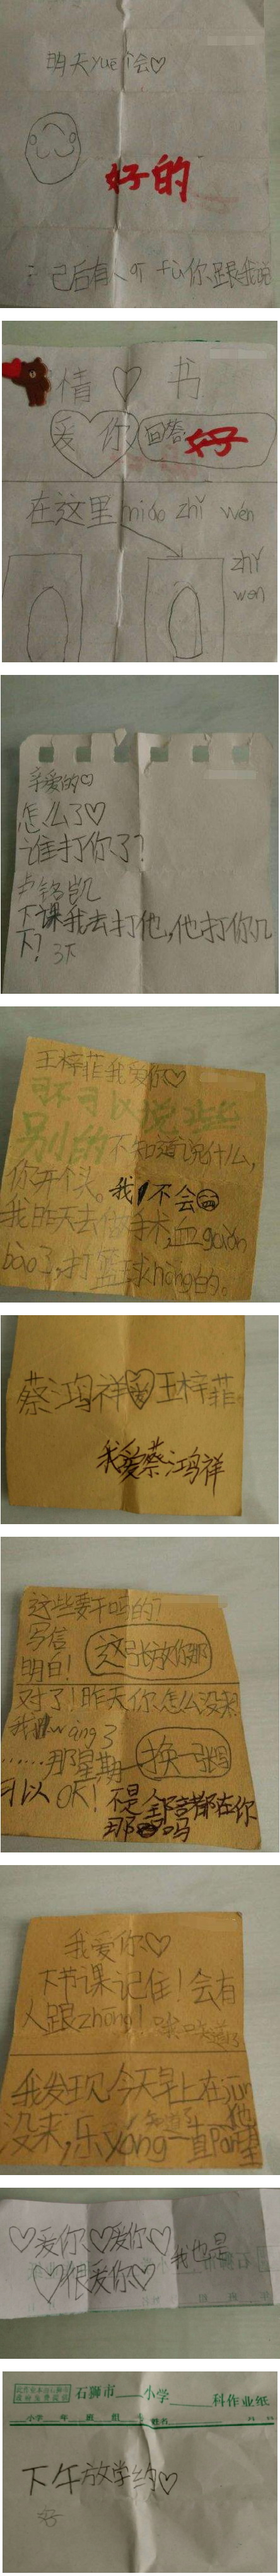 明天yue个会♡
好的
己后有人 你跟我说
情♡书
爱你
回答:好
在这里miao zhǐ wén
zhǐ
wen
亲爱的♡
怎么了♡
谁打你了?
卢铭凯
下课我去打他,他打你几
下? 3下
王梓菲我爱你♡
可不可以说这些
别的 不知道说什么,
你开个头。我不会
我昨天去做手术,血guǎn
bào了,打篮球nòng的。
蔡鸿祥 爱 王梓菲
我爱蔡鸿祥
这些要干吗的?
写信
这张放你那
明白!
对了!昨天你怎么没来
我 wàng了
......那星期一
换一张
可以 OK! 不是全部都在你
那吗
我爱你♡
下节课记住!会有
人跟zhōng!
知道了
我发现今天早上在jun
没来,乐yang一直
♡爱你♡爱你♡
♡很爱你♡
我也是
石狮市 小学 科作业纸
小学 年 班 组 号 姓名
下午放学约♡
好